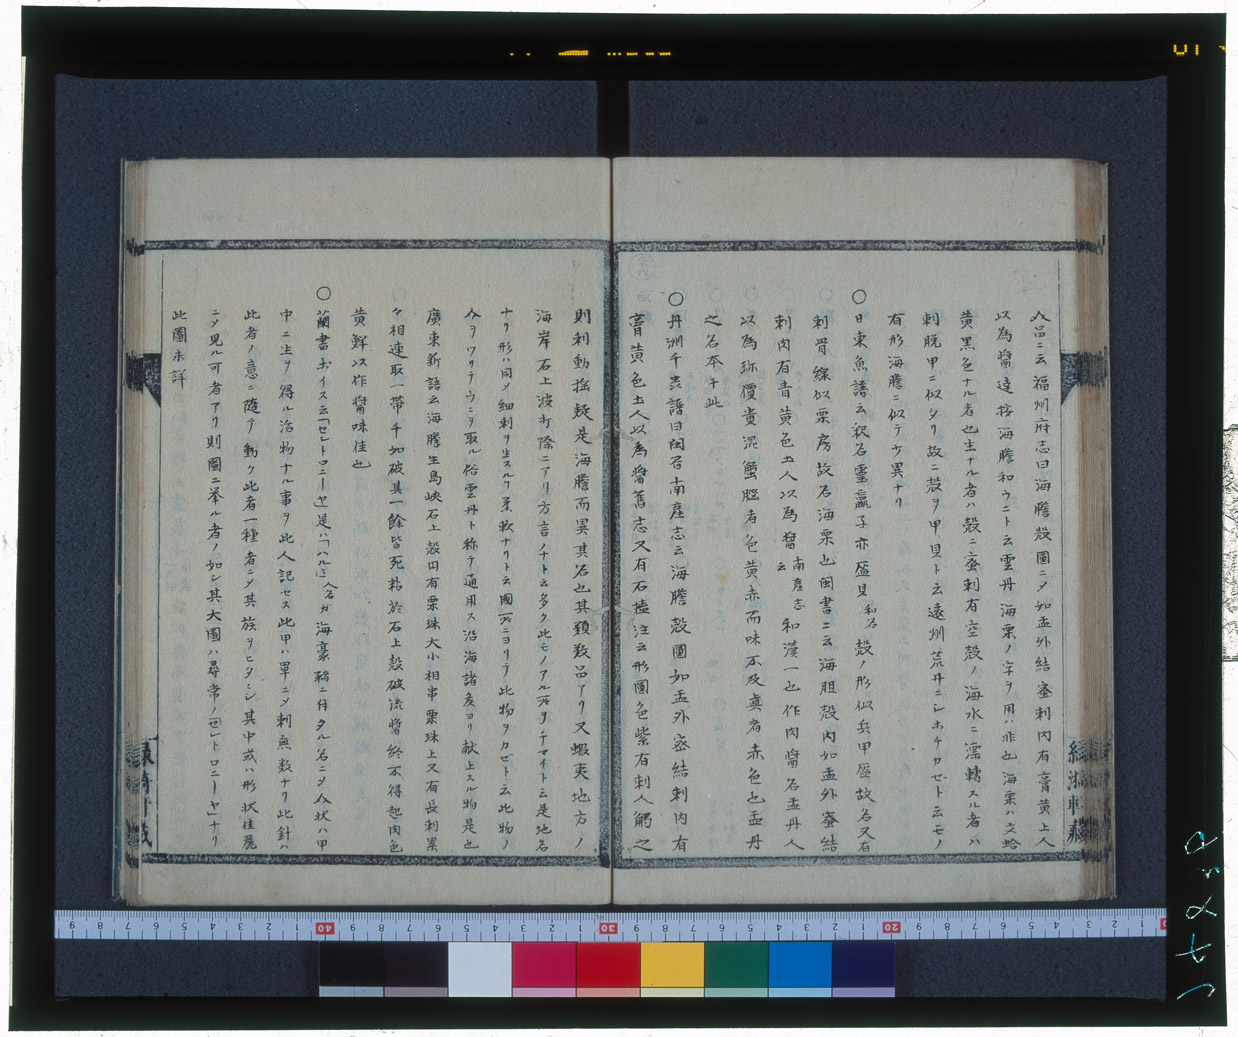 入品ニ云福州府志曰海膽殼圖ニメ如盂外結蜜刺内有膏黄土人
以為醬達按海膽和ウニト云雲丹海栗ノ字ヲ用ハ非也海栗ハ文蛤
黄黒色ナル者也生ナル者ハ殼ニ蜜刺有空殼ノ海水ニ漂轉スル者ハ
刺脱甲ニ似タリ故ニ殼ヲ甲貝ト云遠州荒井ニシホチカゼト云モノ
有形海膽ニ似テ少異ナリ
〇日東魚譜云釈名靈蠃子亦盔貝和名殼ノ形似兵甲盔故名又有
刺骨綠似栗房故名海栗也閩書ニ云海胆殼内如盂外密結
刺肉有青黄色土人以為醬云南産志和漢一也作肉醬名盂丹人
以為珎價貴混蟹脳者色黄赤而味不及真者赤色也盂丹
之名本于此
〇丹洲千蟲譜曰閩呑南産志云海膽殼圓如盂外密結刺内有
膏黄色土人以為醬舊志又有石榼注云形圓色紫有刺人觸之
則刺動揺疑是海膽而異其名也其類数品アリ又蝦夷地方ノ
海岸石上波打際ニアリ方言ノナト云多ク此モノアル所ヲノナマイト云是地名
ナリ形ハ同メ細刺ヲ生スル丁柔軟ナリト云國所ニヨリテ此物ヲカゼト云此物ノ
今ヲワリテウニヲ取ル俗雲丹ト称テ通用ス沿海諸矦ヨリ献上スル物是也
廣東新語云海膽生島峽石上殼円有栗珠大小相串栗珠上又有長刺累
々相連取一帯千如破其一餘皆死粘於石上殼破流醬終不得起肉色
黄鮮以作醬味佳也
〇蘭書ボイス云「セレトロニーヤ」是ハ「ハルヒ」人名ガ海豪豬ニ付タル名ニメ今状ハ甲
中ニ生ヲ得ル活物ナル事ヲ此人記セス此甲ハ單ニメ刺無数ナリ此針ハ
此者ノ意ニ随テ動ク此者一種者ニメ其族ヲヒタシ其中或ハ形状佳麗
ニメ見ル可者アリ則圖ニ挙ル者ノ如シ其大圖ハ尋常ノ「セレトロニーヤ」ナリ
此圖未詳